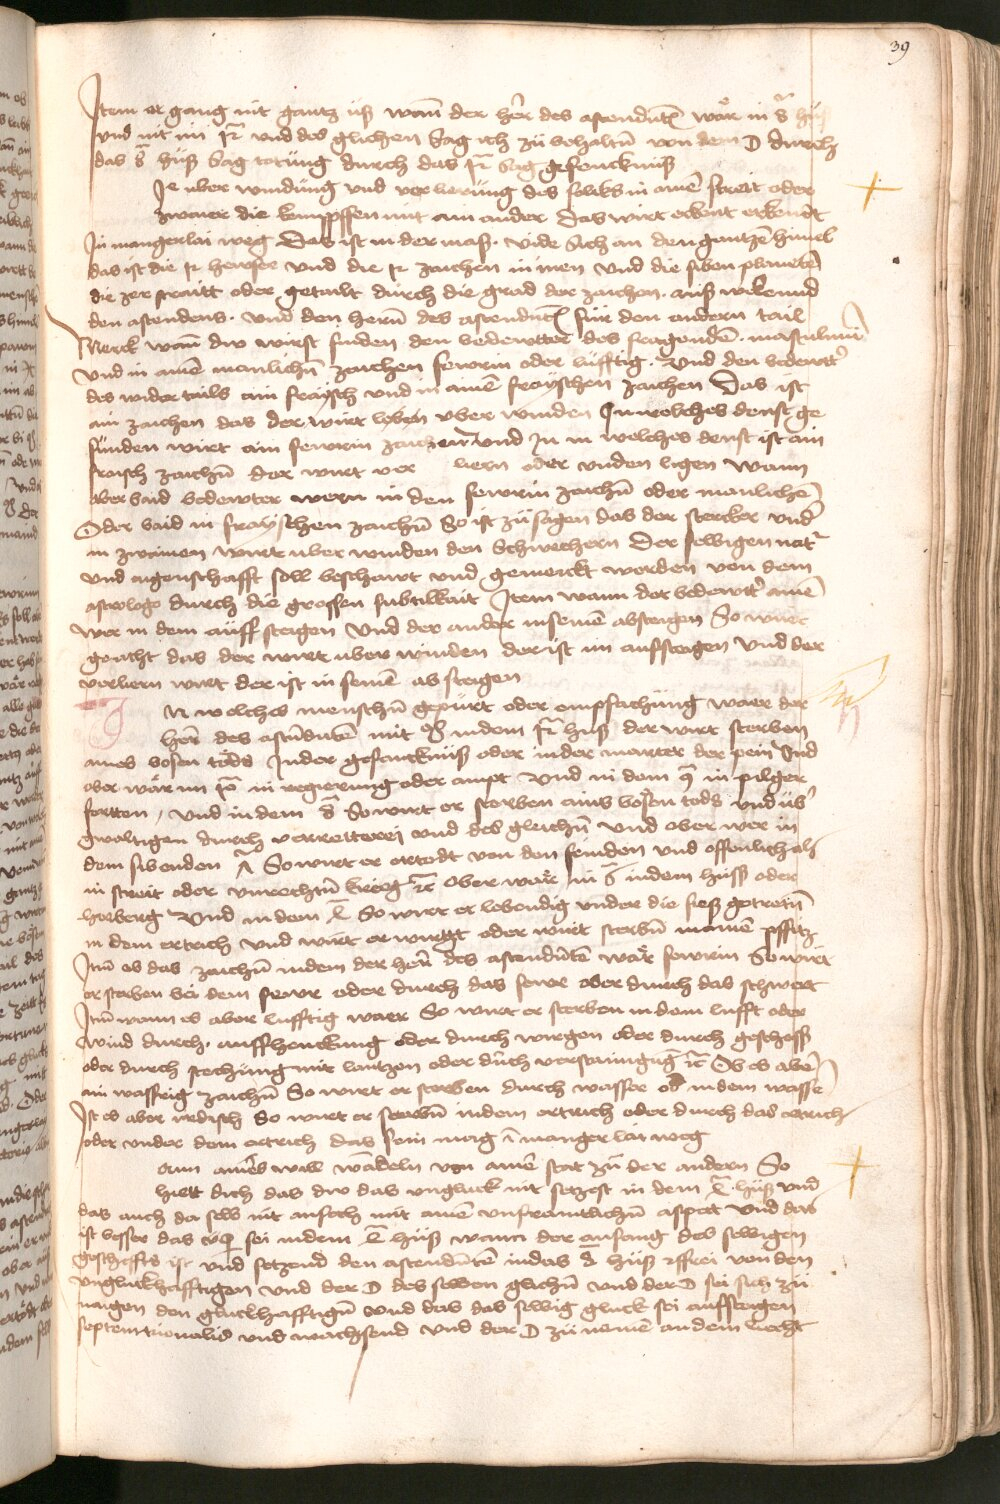 39
Item er gang nit gantz uß wan̄ der her̄ des ascendētz wār in 8 huß
und nit im 12 und des glichen sag ich zu behaltn̄ von dem ☽ durch
das 8 huß sag totung durch das 12 sag gefencknuß
Je uber windung und verlierung des folks in ainē streit oder
zwaier die kempffen mit ain ander das wirt erkent erkent
In mangerlai weg Das ist in der maß. vide sich an den gantzē himel
das ist die 12 hewser und die 12 zaichen in inen und die siben planetē
die zer straitt oder getailt durch die grad der zaichen.
den ascendens. und den hern̄ des ascendētz für den andern tail
Merck wan̄ diw wirst finden den bedewtter des fragenden. masculinū
und in ainē manlichn̄ zaichen fewrin oder lüfftig. und den bedewtt̄
des wider tails ain fraÿsch und in ainē fraÿschen zaichen Das ist
ain zaichen das der wirt leben uber winden In welches denst ge
funden wirt ain fewrin zaichen und in welches denst ist ain
fraisch zaichn̄ der wirt ver liern oder unden ligen wann
aber baid bedewter wern in den fewrin zaichn̄ oder manlichē
Oder baid in fraÿschen zaichn̄ So ist zu sagen das der stercker und̄
in zwaimen wirt uber winden den schwechern Der selbigen nat̄
und aigenschafft soll beschawt und gemerckt werden von dem
astrologo durch die grossen subtilkait Item wann der bedewtt̄ ainē
wer in dem auff steigen und der ander in seinē absteigen So wirt
geacht das der wirt uber winden der ist im auffsteigen und der
verliern wirt der ist in seinē ab steigen
N welches menschn̄ gepurt oder empfachung waer der
her̄ des ascendētē mit in dem 12 huß der wirt sterben
aines bösen töds In der gefencknuß oder in der marter der pein und
ober wār im 10 in regierung oder ampt und in dem 9 in pilger
fertten, und in dem 8 So wirt er sterben ains bösen tods und üb̄
gwaltigen durch verretterei und des gleichn̄ und ober wer in
dem sibenden So wirt er ertodt von den feinden und offenlich als
in streit oder unrechtn̄ krieg ꝛc ober wār in 6 in dem huss oder
herberg und in dem So wirt er lebendig under die fieß getretn̄
in dem ertrich und wirt er wurgt oder wirt sterbn̄ in ainē pfitz
Itm̄ ob das zaichn̄ in dem der her̄ des ascendētē wār fewrin So wirt
er sterben bei dem fewr oder durch das fewr oder durch das schwert
Itm̄ wann es aber lufftig waer So wirt er sterben in dem lufft oder
wind durch. auffhenckung oder durch wurgen oder durch geschoss
oder durch stechung mit lantzen oder durch verstainigung ꝛc Ob es abē
ain wassrig zaichn̄ So wirt er sterben durch wasser od̄ in dem wasse
Ist es aber irdisch So wirt er sterbn̄ in dem ertrich oder durch das ertrich
oder under dem ertrich das sein mag ī manger lai weg
enn ainēs will wādeln von ainē stat zu der andern So
hiett dich das diw das ungluck nit setzest in dem huß und
das auch da selb nit anfach mit ainē unfraintlichn̄ aspect und das
ist besser das sei in dem huß wann der anfang des selbigen
geschefft̄s ist und setzend den ascendētē in das huß ꝛ frei von den
ungluckhafftigen und der ☽ des selben glichn̄ und der ☽ sei sich zu
naigen den gluckhafftign̄ und das das selbig gluck sei auffsteigen
septemtrionalis und wachsend und der ☽ zu nemē an dem liecht